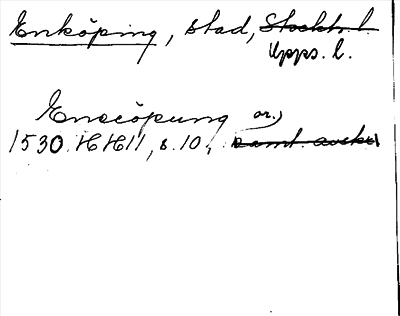 Enköping, stad, Stockh. l.
Upps. l.
Enecöpung or.)
1530. HH 11, s. 10, samt. avskr